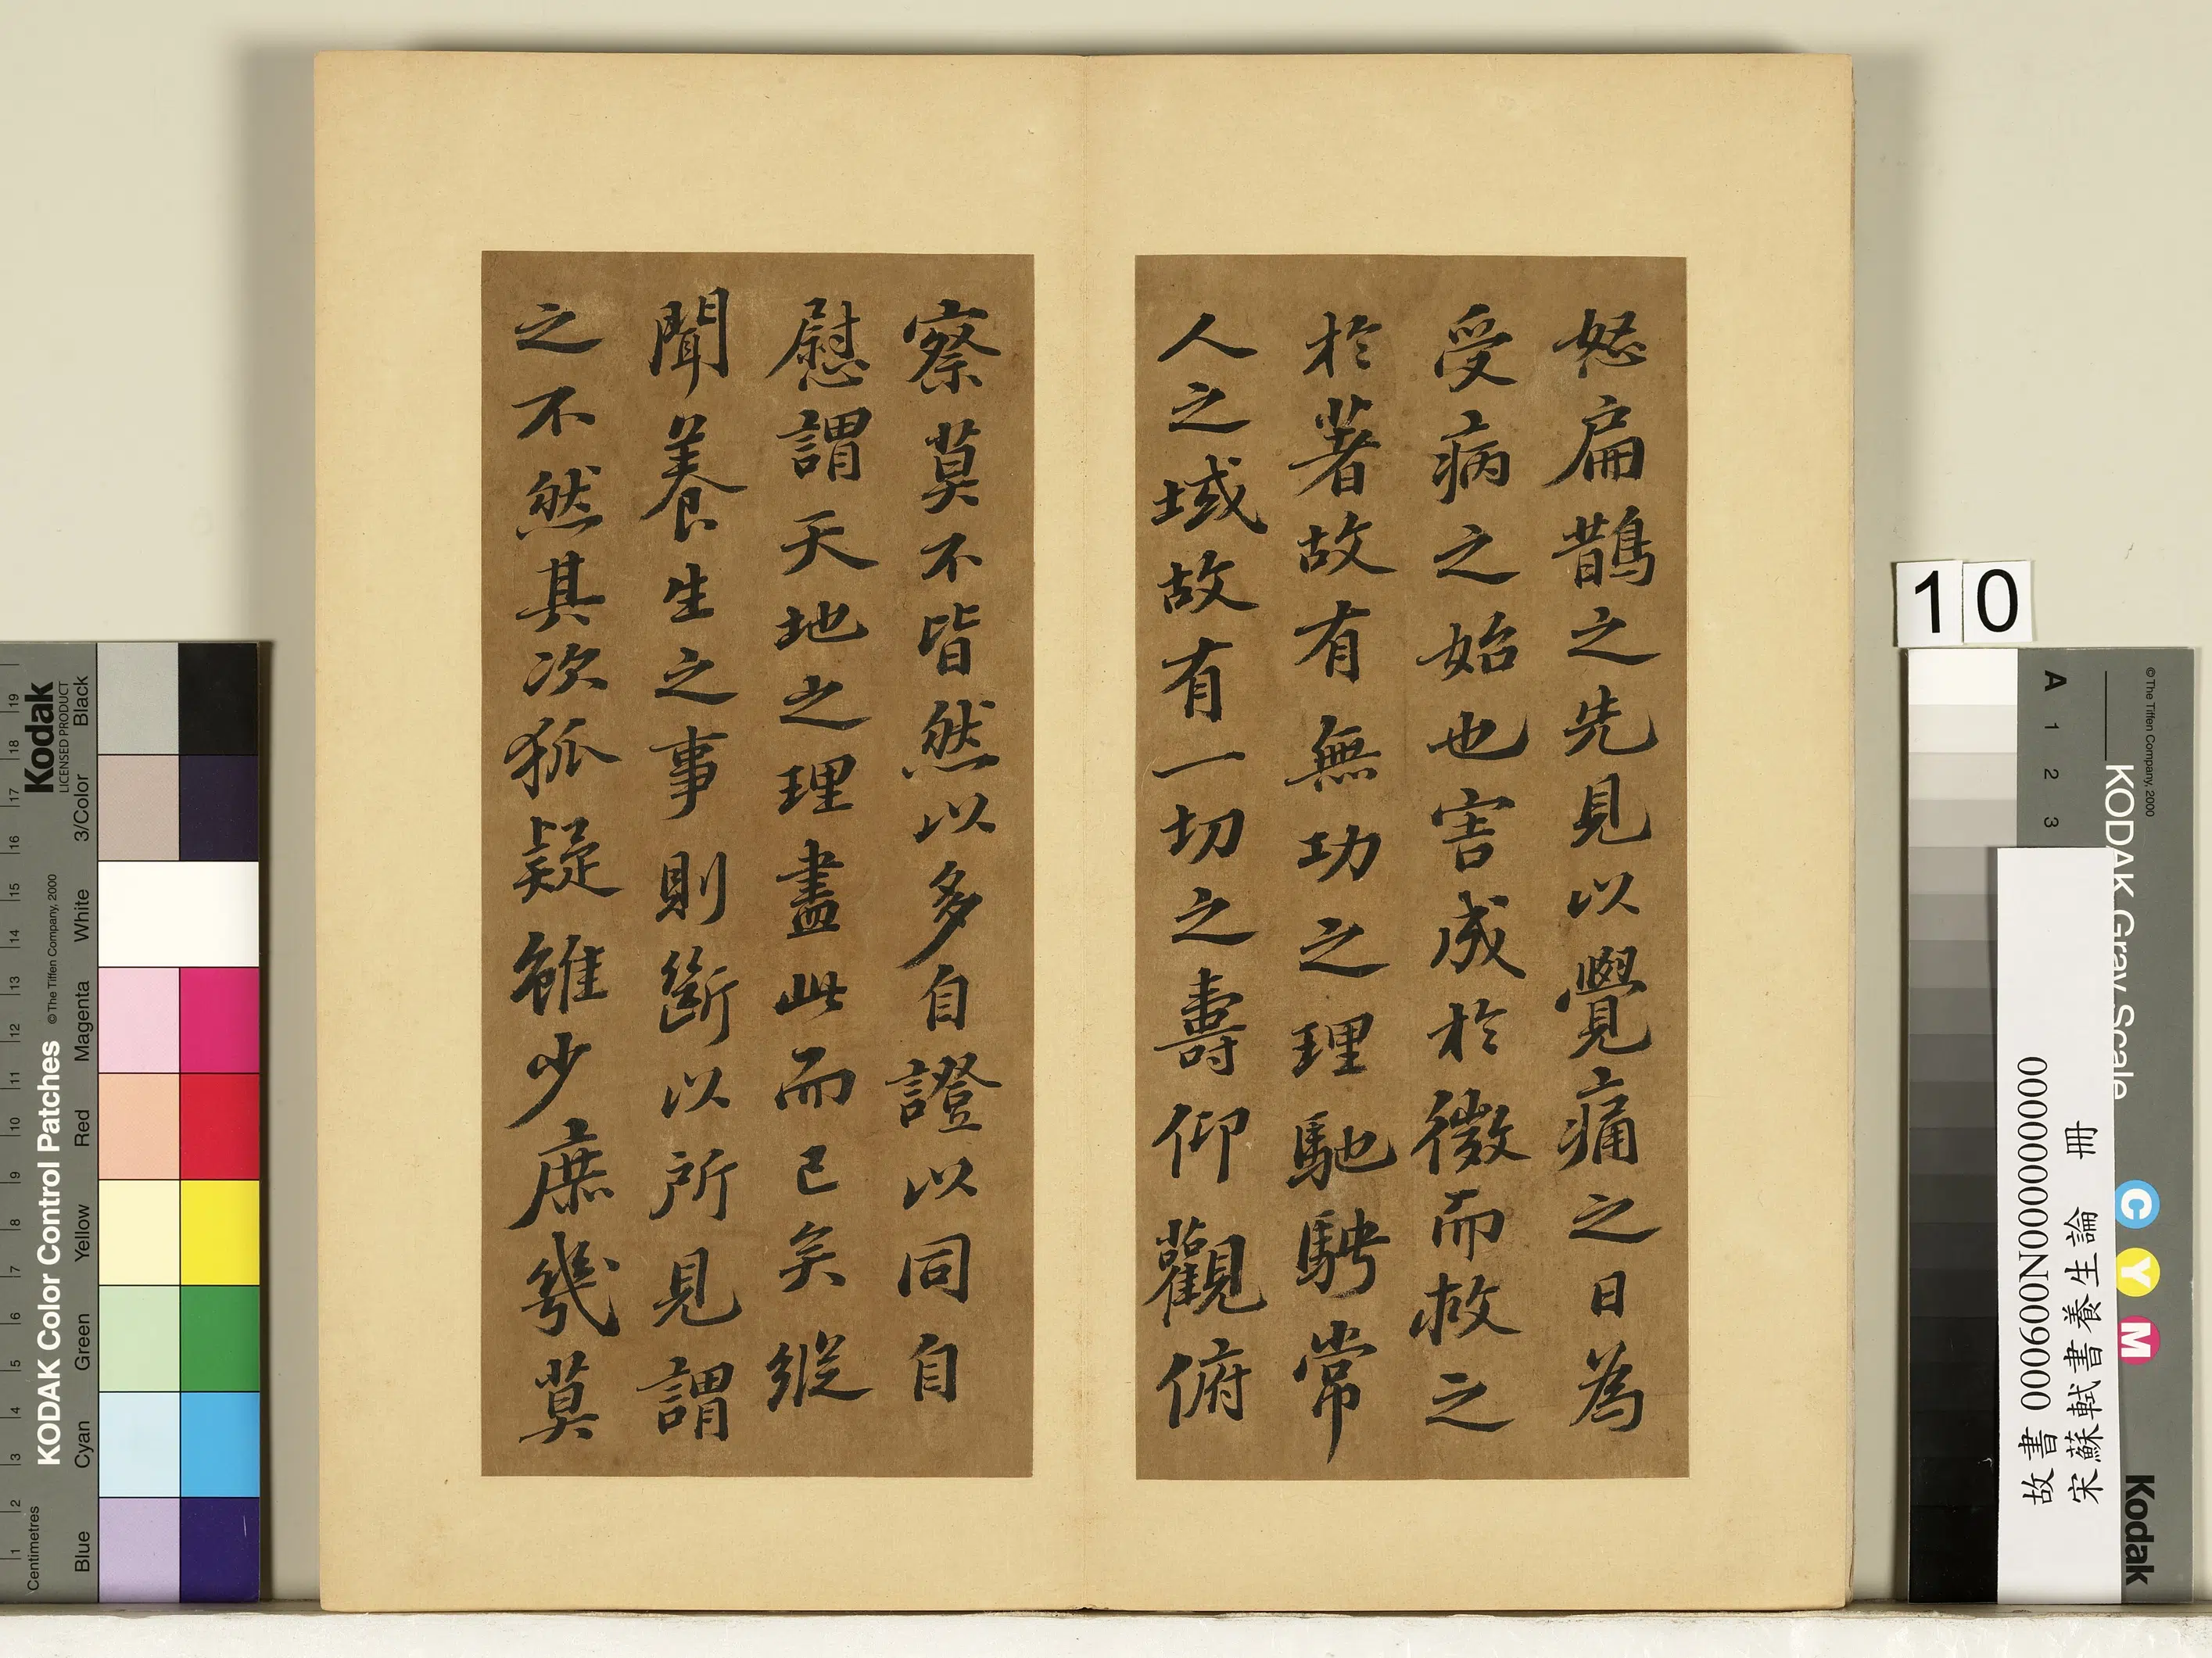 怒扁鵲之先見以覺痛之日為
受病之始也害成於微而救之
於著故有無功之理馳騁常
人之域故有一切之壽仰觀俯
察莫不皆然以多自證以同自
慰謂天地之理盡此而已矣縱
聞養生之事則斷以所見謂
之不然其次狐疑雖少庶幾莫
10
KODAK Color Control Patches
©The Tiffen Company, 2000
Kodak
LICENSED PRODUCT
Centimetres
1 2 3 4 5 6 7 8 9 10 11 12 13 14 15 16 17 18 19
Blue Cyan Green Yellow Red Magenta White 3/Color Black
©The Tiffen Company, 2000
KODAK Gray Scale
C Y M
Kodak
A 1 2 3
故書 000600N000000000
宋蘇軾書養生論 冊